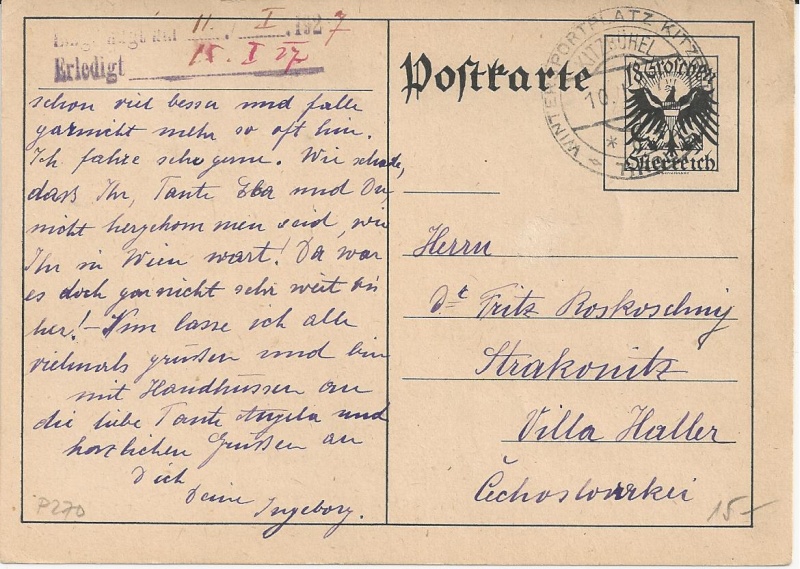 11. I. 1927
Erledigt 15. I 27
schon viel besser und falle
garnicht mehr so oft hin.
Ich fahre sehr gerne. Wie schade,
dass Ihr, Tante Ella und Du,
nicht hergekommen seid, wie
Ihr in Wien wart! Da war
es doch garnicht sehr weit bis
her! – Nun lasse ich alle
vielmals grüssen und bin
mit Handküssen an
die liebe Tante Angela und
herzlichen Grüssen an
Dich
Deine Ingeborg.
P270
WINTERSPORTPLATZ KITZ
KITZBÜHEL
10.
Postkarte
18 Groschen
Österreich
Herrn
Dr Fritz Roskoschny
Strakonitz
Villa Haller
Čechoslovakei
15-